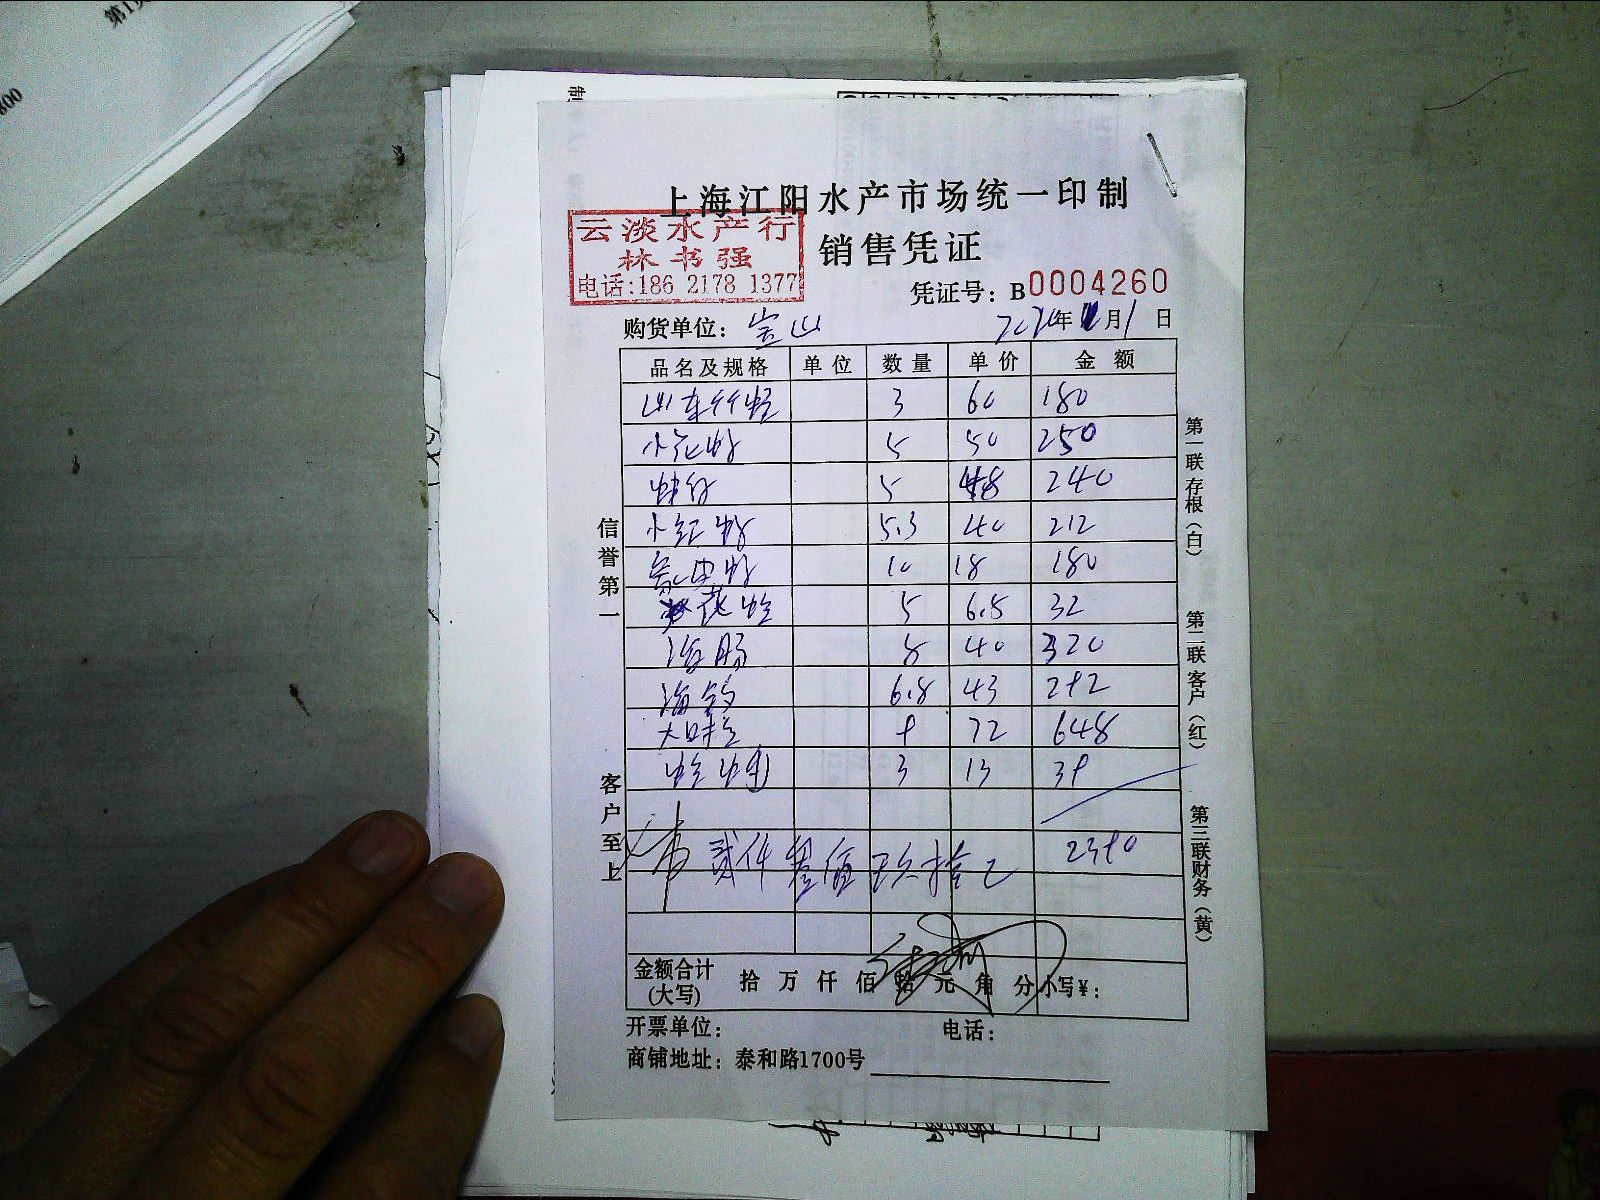 上海江阳水产市场统一印制
云淡水产行
林书强
电话:186 2178 1377
销售凭证
凭证号: B0004260
购货单位: 宝山
年 月 1 日
品名及规格 单位 数量 单价 金额
山东竹蛏 3 60 180
小花蛤 5 50 250
5 48 240
小红蛤 5.3 40 212
10 18 180
花蛤 5 6.5 32
海肠 8 40 320
海 6.8 43 292
9 72 648
蛏 3 13 39
贰仟叁佰玖拾 2390
金额合计
(大写)
拾 万 仟 佰 拾 元 角 分 小写¥:
开票单位: 电话:
商铺地址: 泰和路1700号
信誉第一
客户至上
第一联 存根(白)
第二联 客户(红)
第三联 财务(黄)